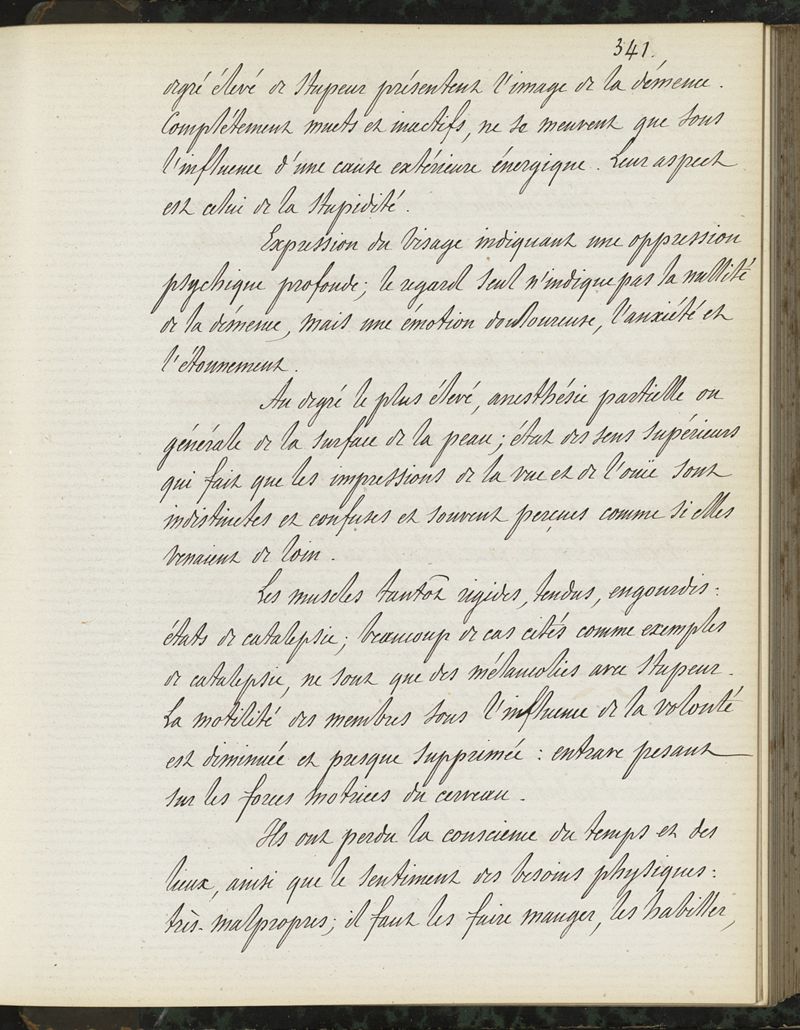 341.
degré élevé de stupeur présentent l'image de la démence.
Complétement muets et inactifs, ne se meuvent que sous
l'influence d'une cause extérieure énergique. Leur aspect
est celui de la stupidité.
Expression du visage indiquant une oppression
psychique profonde; le regard seul n'indique pas la nullité
de la démence, mais une émotion douloureuse, l'anxiété et
l'étonnement.
Au degré le plus élevé, anesthésie partielle ou
générale de la surface de la peau; état des sens supérieurs
qui fait que les impressions de la vue et de l'ouïe sont
indistinctes et confuses et souvent perçues comme si elles
venaient de loin.
Les muscles tantôt rigides, tendus, engourdis:
états de catalepsie; beaucoup de cas cités comme exemples
de catalepsie, ne sont que des mélancolies avec stupeur.
La motilité des membres sous l'influence de la volonté
est diminuée et presque supprimée: entrave pesant
sur les forces motrices du cerveau.
Ils ont perdu la conscience du temps et des
lieux, ainsi que le sentiment des besoins physiques:
très-malpropres; il faut les faire manger, les habiller,